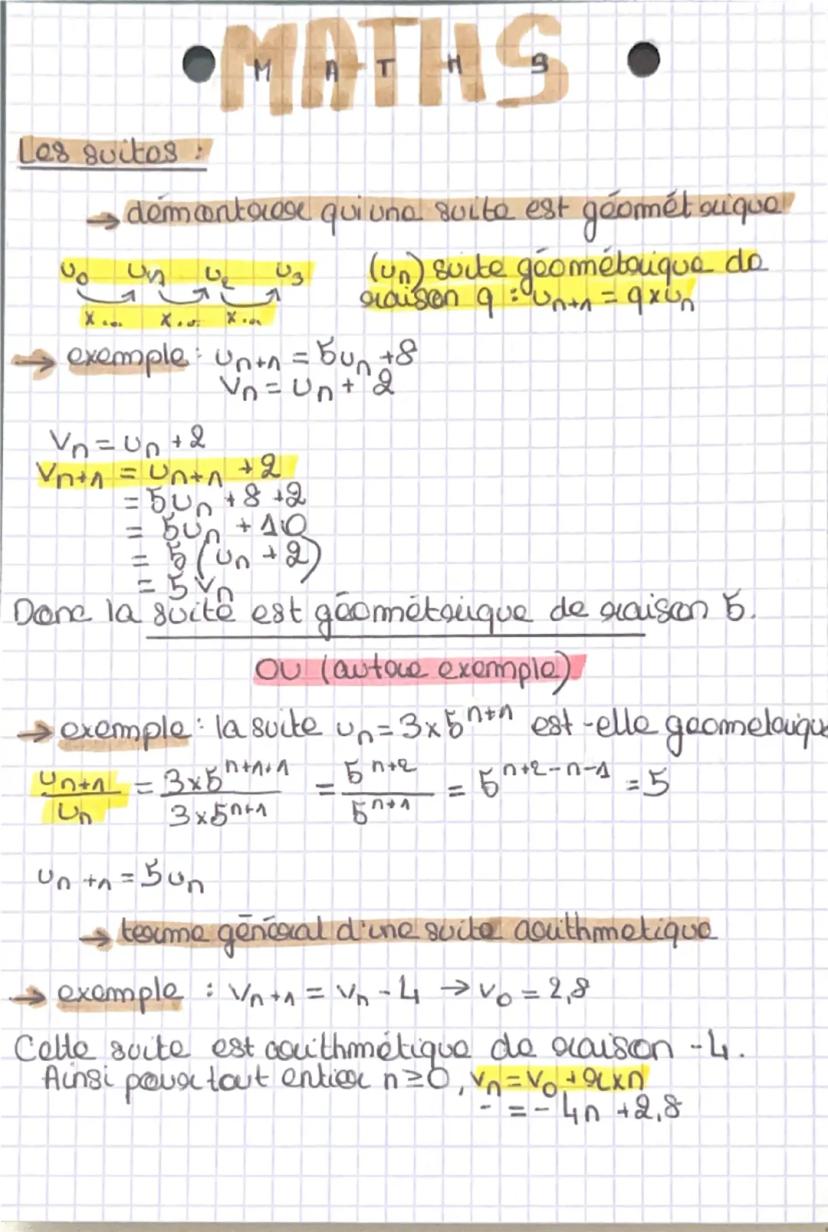 MATHS
MATHS
Les suites :
→ démontrer qu'une suite est géométrique
u₀ u₁ u₂ u₃
x... x... x...
(uₙ) suite géométrique de
raison q : uₙ₊₁ = q×uₙ
→ exemple : uₙ₊₁ = 5uₙ +8
Vₙ = uₙ + 2
Vₙ = uₙ +2
Vₙ₊₁ = uₙ₊₁ +2
= 5uₙ +8 +2
= 5uₙ + 10
= 5 (uₙ +2)
= 5Vₙ
Donc la suite est géométrique de raison 5.
OU (autre exemple)
→ exemple : la suite uₙ = 3×5ⁿ⁺¹ est-elle geometrique
uₙ₊₁/uₙ = 3×5ⁿ⁺¹⁺¹/3×5ⁿ⁺¹ = 5ⁿ⁺²/5ⁿ⁺¹ = 5ⁿ⁺²⁻ⁿ⁻¹ = 5
uₙ₊₁ = 5uₙ
→ terme général d'une suite arithmetique
→ exemple : Vₙ₊₁ = Vₙ - 4 → V₀ = 2,8
Cette suite est arithmétique de raison -4.
Ainsi pour tout entier n≥0, Vₙ = V₀ + r×n
- = - 4n +2,8